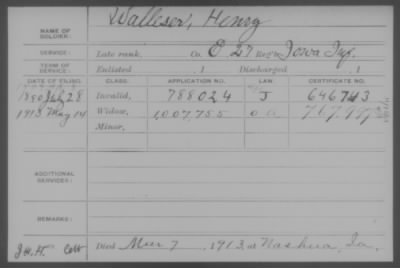 Walliser, Henry
NAME OF SOLDIER:
SERVICE: Late rank, Co. E 27 Reg't Iowa Inf.
TERM OF SERVICE: Enlisted , 1 Discharged , 1
DATE OF FILING. CLASS. APPLICATION NO. LAW. CERTIFICATE NO.
1890 July 28 Invalid, 788024 J 646743
1913 May 14 Widow, 1,007,755 767,
Minor,
ADDITIONAL SERVICES:
REMARKS:
Died Mar 7, 1913, at Nashua, Ia.